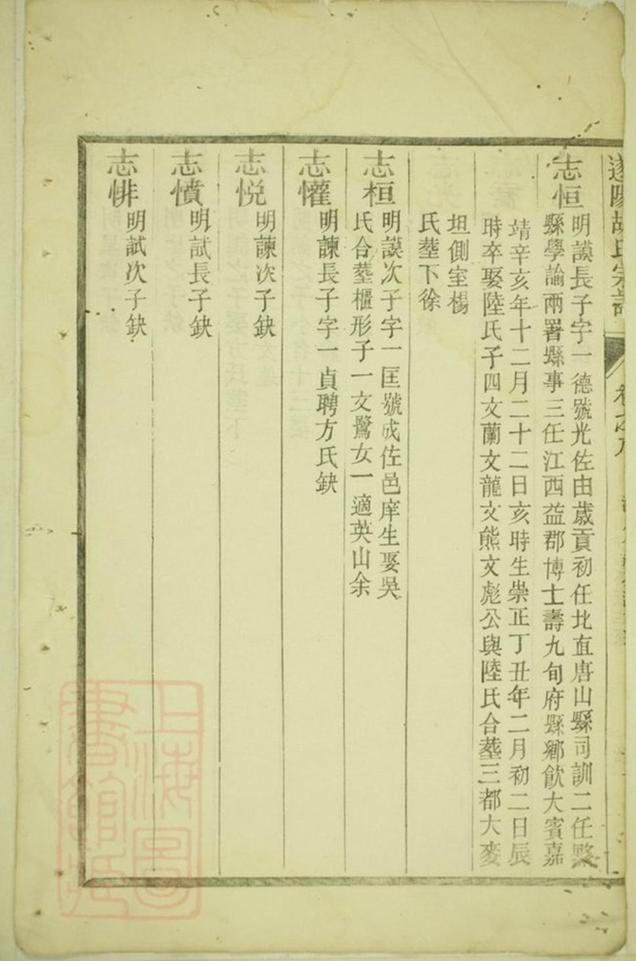 胡氏宗譜
志恒
明謨長子字一德號光佐由歲貢初任北直唐山縣司訓二任縣
縣學諭兩署縣事三任江西益郡博士壽九旬府縣鄉飲大賓嘉
靖辛亥年十二月二十二日亥時生崇正丁丑年二月初二日辰
時卒娶陸氏子四文蘭文龍文熊文彪公與陸氏合塟三都大麥
坦側室楊
氏塟下徐
志桓
明謨次子字一匡號成佐邑庠生娶吳
氏合塟櫃形子一文鷺女一適英山余
志懽
明諫長子字一貞聘方氏缺
志悅
明諫次子缺
志憤
明試長子缺
志悱
明試次子缺
上海圖
書館藏